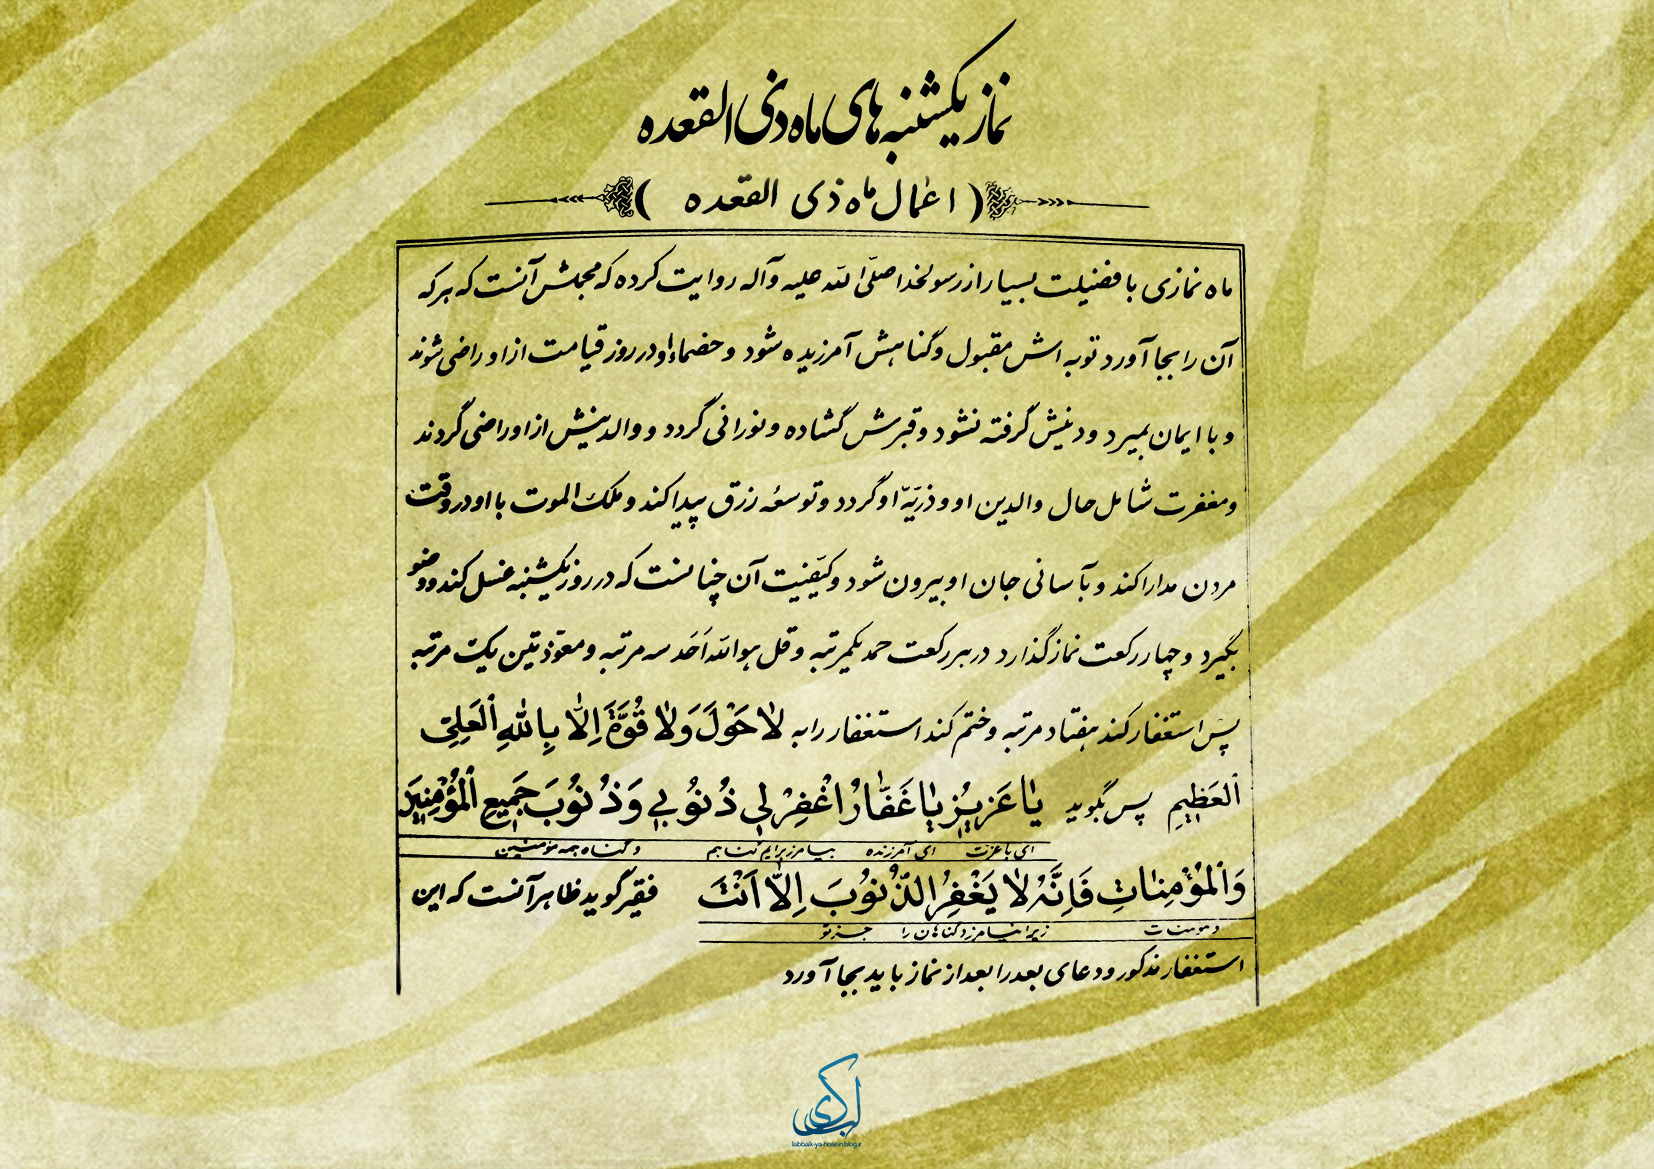 نماز یکشنبه های ماه ذی القعده
( اعمال ماه ذی القعده )
ماه نمازی با فضیلت بسیار از رسولخدا صلّی الله علیه وآله روایت کرده که مجملش آنست که هر که
آن را بجا آورد توبه اش مقبول وگناهش آمرزیده شود و خصماء او در روز قیامت از او راضی شوند
و با ایمان بمیرد و دینش گرفته نشود و قبرش گشاده و نورانی گردد و والدینش از او راضی گردند
و مغفرت شامل حال والدین او و ذریّهٔ او گردد و توسعهٔ رزق پیدا کند و ملک الموت با او در وقت
مردن مدارا کند و بآسانی جان او بیرون شود و کیفیت آن چنانست که در روز یکشنبه غسل کند و وضو
بگیرد و چهار رکعت نماز گذارد در هر رکعت حمد یکمرتبه و قل هو الله اَحَد سه مرتبه و معوّذتین یک مرتبه
پس استغفار کند هفتاد مرتبه و ختم کند استغفار را به لاٰ حَوْلَ وَلاٰ قُوَّةَ اِلاّٰ بِاللّٰهِ الْعَلِیِّ
الْعَظِیمِ پس بگوید یاٰ عَزیٖزُ یاٰ غَفّٰارُ اغْفِرْ لیٖ ذُنُوبیٖ وَذُنُوبَ جَمیٖعِ الْمُؤْمِنیٖنَ
ای با عزت ای آمرزنده بیامرز برایم گناهم و گناه همه مؤمنین
وَالْمُؤْمِنٰاتِ فَاِنَّهُ لاٰ یَغْفِرُ الذُّنُوبَ اِلاّٰ اَنْتَ فقیر گوید ظاهر آنست که این
و مومنات زیرا نیامرزد گناهان را جز تو
استغفار مذکور و دعای بعد را بعد از نماز باید بجا آورد
لبیک
labbaik-ya-hosein.blog.ir